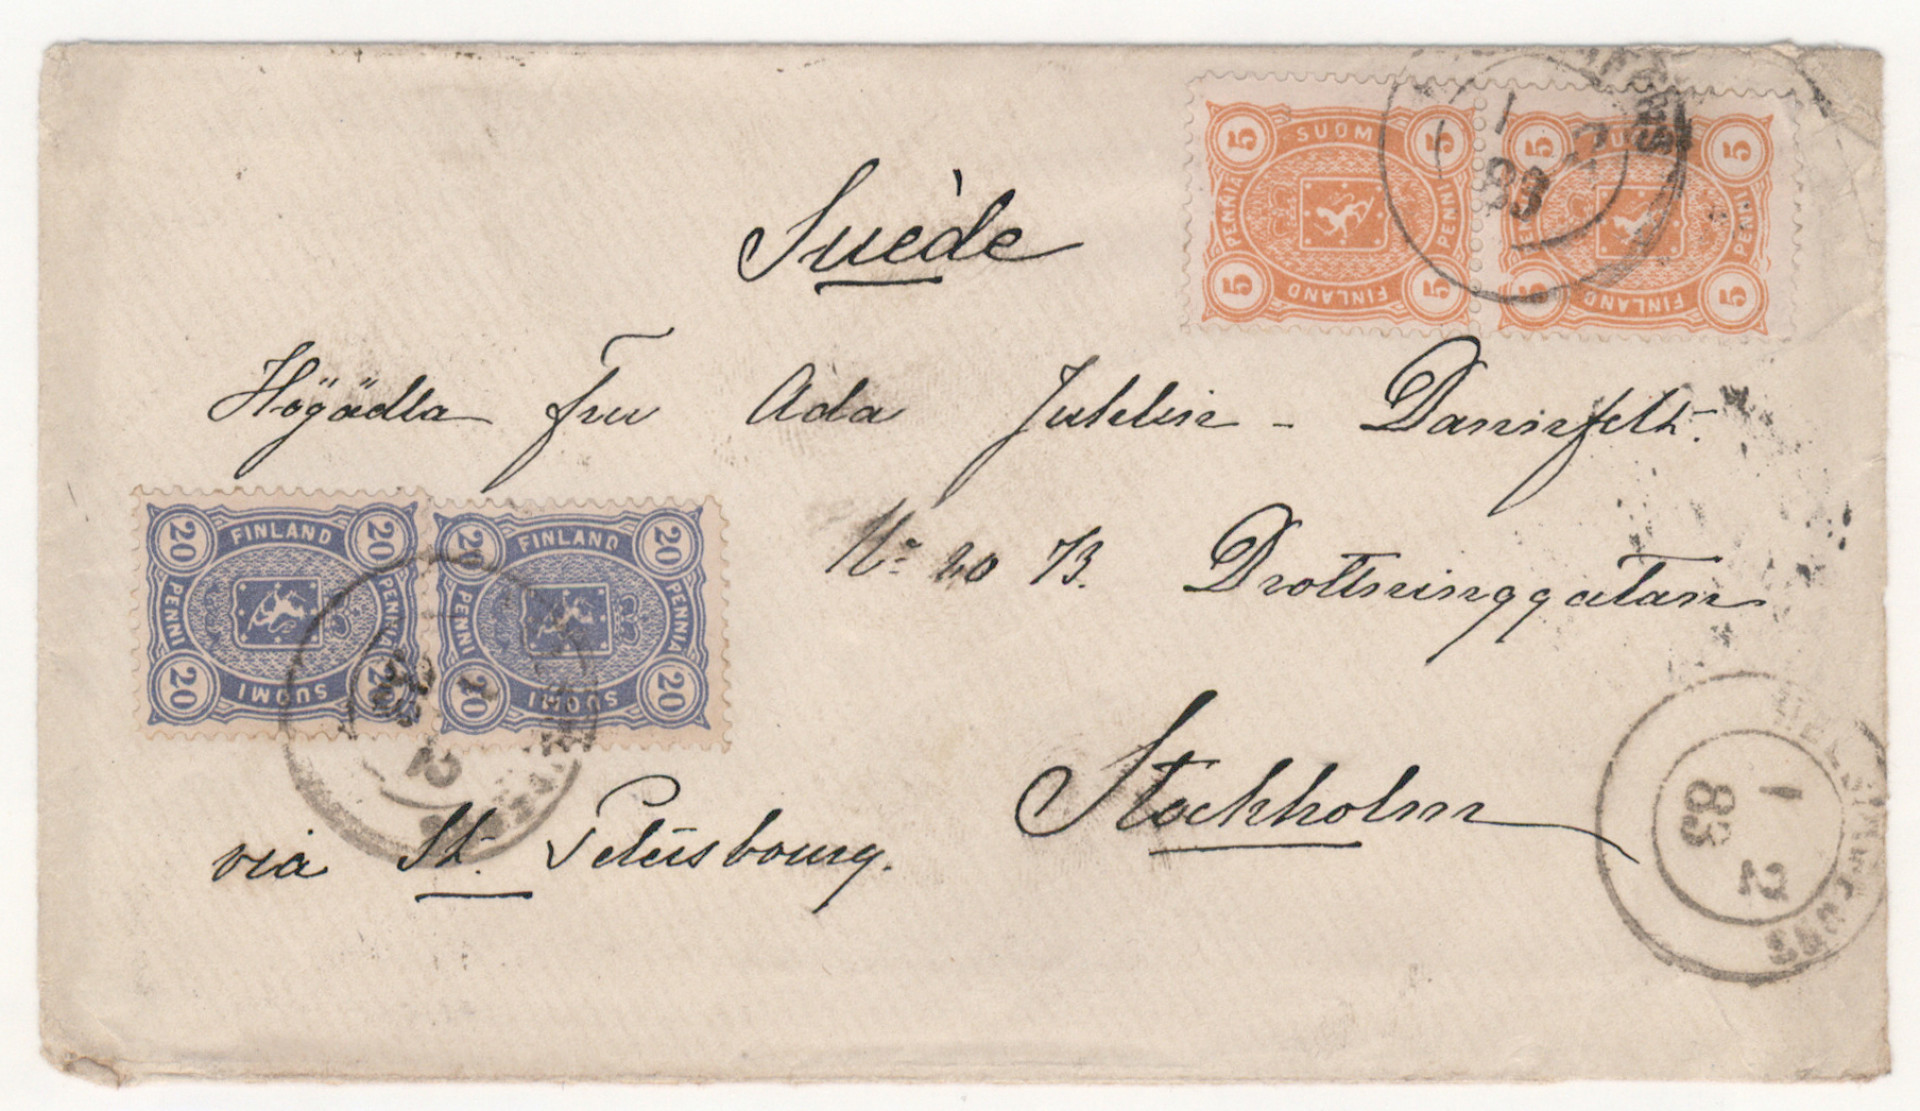 Suède
Högädla Fru Ada Juhlin - Dannfelt.
No 20 B. Drottninggatan
Stockholm
via St. Petersbourg.
5 SUOMI 5
PENNIÄ PENNI
5 FINLAND 5
5 SUOMI 5
PENNIÄ PENNI
5 FINLAND 5
1 2
83
20 FINLAND 20
PENNI PENNIÄ
20 SUOMI 20
20 FINLAND 20
PENNI PENNIÄ
20 SUOMI 20
1 2
83
HELSINGFORS
1 2
83